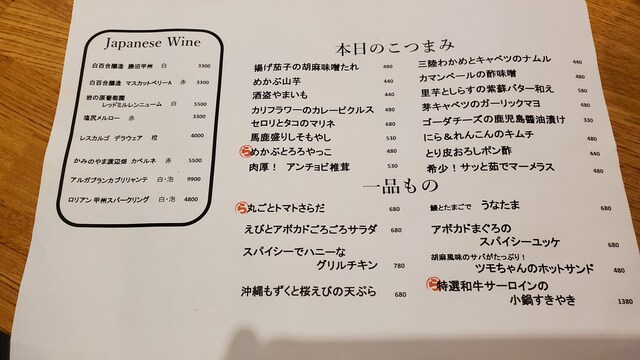 Japanese Wine
白百合醸造 勝沼甲州 白 3300
白百合醸造 マスカットベリーA 赤 3300
岩の原葡萄園
レッドミルレンニューム 白 5500
塩尻メルロー 赤 3300
レスカルゴ デラウェア 橙 4000
かみのやま渡辺畑 カベルネ 赤 5500
アルガブランカブリリャンテ 白・泡 9900
ロリアン 甲州スパークリング 白・泡 4800
本日のこつまみ
揚げ茄子の胡麻味噌たれ 480
めかぶ山芋 440
酒盗やまいも 440
カリフラワーのカレーピクルス 480
セロリとタコのマリネ 680
馬鹿盛りしそもやし 530
ら めかぶとろろやっこ 480
肉厚! アンチョビ椎茸 530
三陸わかめとキャベツのナムル 440
カマンベールの酢味噌 480
里芋としらすの紫蘇バター和え 580
芽キャベツのガーリックマヨ 480
ゴーダチーズの鹿児島醬油漬け 330
にら&れんこんのキムチ 480
とり皮おろしポン酢 440
希少!サッと茹でマーメラス 480
一品もの
ら 丸ごとトマトさらだ 680
えびとアボカドごろごろサラダ 680
スパイシーでハニーな
グリルチキン 780
沖縄もずくと桜えびの天ぷら 680
鰻とたまごで うなたま 680
アボカドまぐろの
スパイシーユッケ 680
胡麻風味のサバがたっぷり!
ツモちゃんのホットサンド 480
ら 特選和牛サーロインの
小鍋すきやき 1380